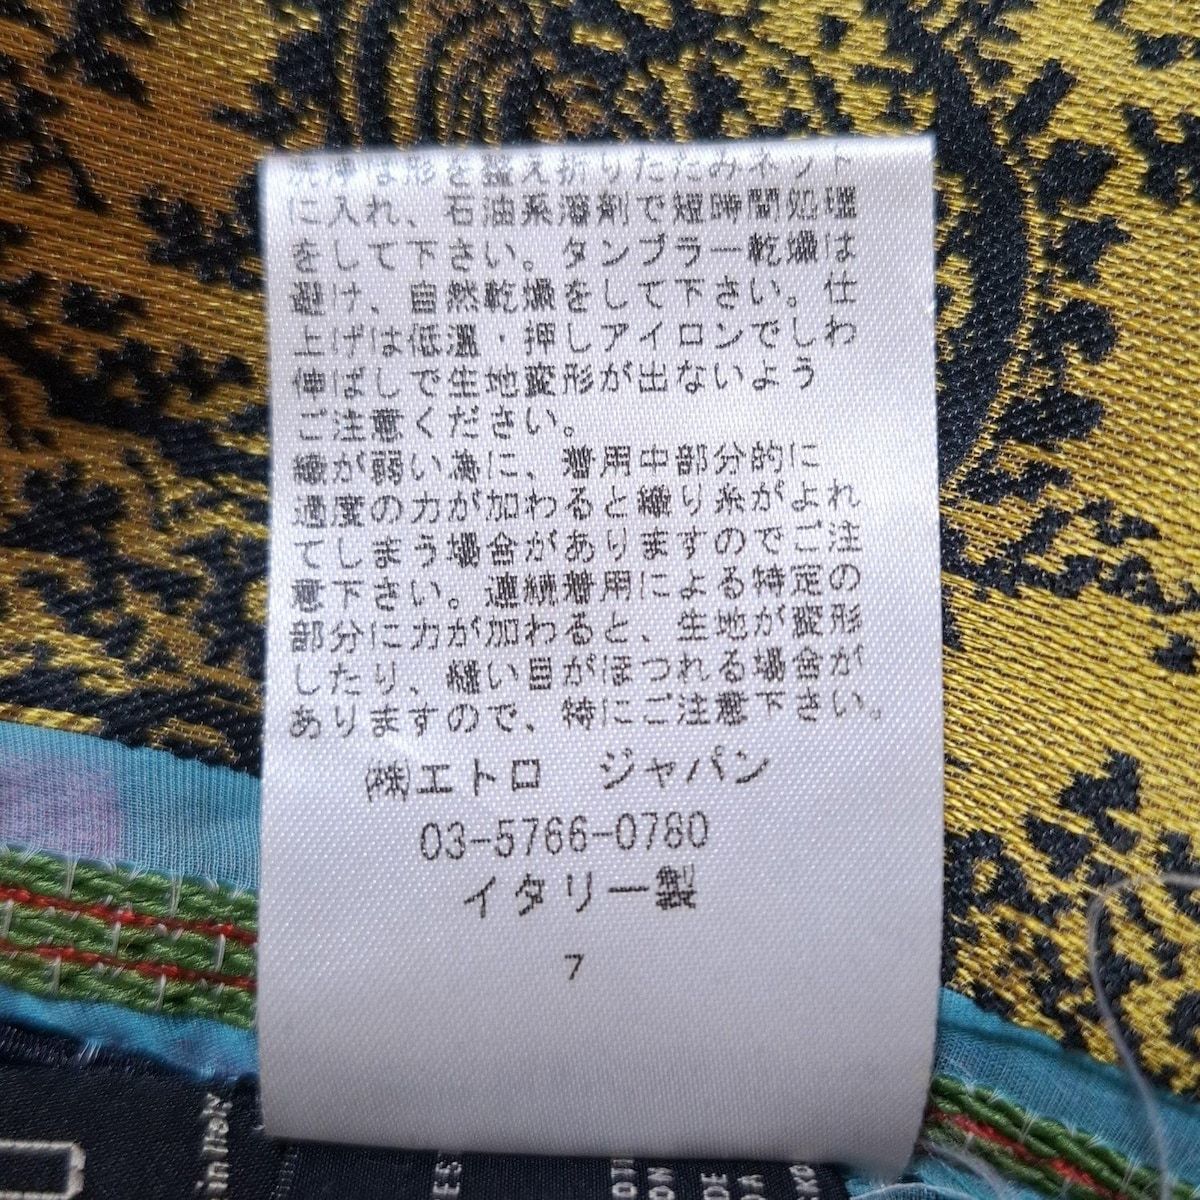 洗浄は形を整え折りたたみネット
に入れ、石油系溶剤で短時間処理
をして下さい。タンブラー乾燥は
避け、自然乾燥をして下さい。仕
上げは低温・押しアイロンでしわ
伸ばしで生地変形が出ないよう
ご注意ください。
織が弱い為に、着用中部分的に
過度の力が加わると織り糸がよれ
てしまう場合がありますのでご注
意下さい。連続着用による特定の
部分に力が加わると、生地が変形
したり、縫い目がほつれる場合が
ありますので、特にご注意下さい。
㈱エトロ　ジャパン
03-5766-0780
イタリー製
7